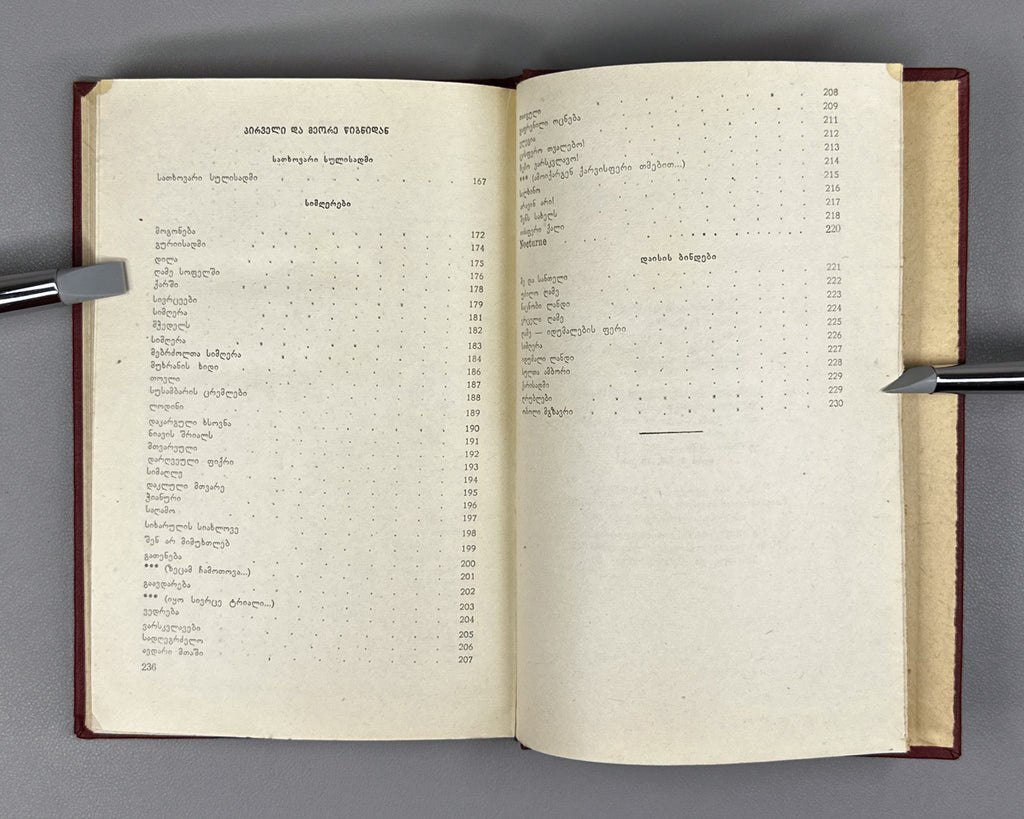 პირველი და მეორე წიგნიდან
სათხოვარი სულისადმი
სათხოვარი სულისადმი 167
სიმღერები
მოგონება 172
გურიისადმი 174
დილა 175
ღამე სოფელში 176
ქარში 178
სივრცეები 179
სიმღერა 181
მჭედელს 182
სიმღერა 183
მებრძოლთა სიმღერა 184
მუხრანის ხიდი 186
თოვლი 187
სუსამბარის ცრემლები 188
ლოდინი 189
დაკარგული ხსოვნა 190
ნიავის შრიალს 191
მთვარეული 192
დარღვეული ფიქრი 193
სიმაღლე 194
დაკლული მთვარე 195
ჭიანური 196
საღამო 197
სიხარულის სიახლოვე 198
შენ არ მიმუხთლებ 199
გათენება 200
*** (ზეცამ ჩამოთოვა...) 201
გაავდარება 202
*** (იყო სივრცე ტრიალი...) 203
ვედრება 204
ვარსკვლავები 205
სადღეგრძელო 206
ავდარი მთაში 207
236
208
ოცნება 209
211
თვალებო! 212
ვარსკვლავო! 213
*** (ამოიქარგენ ქარვისფერი თმებით...) 214
215
არი! 216
შენს სახელს 217
ქალი 218
Nocturne 220
დაისის ბინდები
მე და სანთელი 221
ღამე 222
ლანდი 223
ღამე 224
ღამე — იდუმალების ფერი 225
სიმღერა 226
იდუმალი ლანდი 227
ამბორი 228
229
229
მგზავრი 230